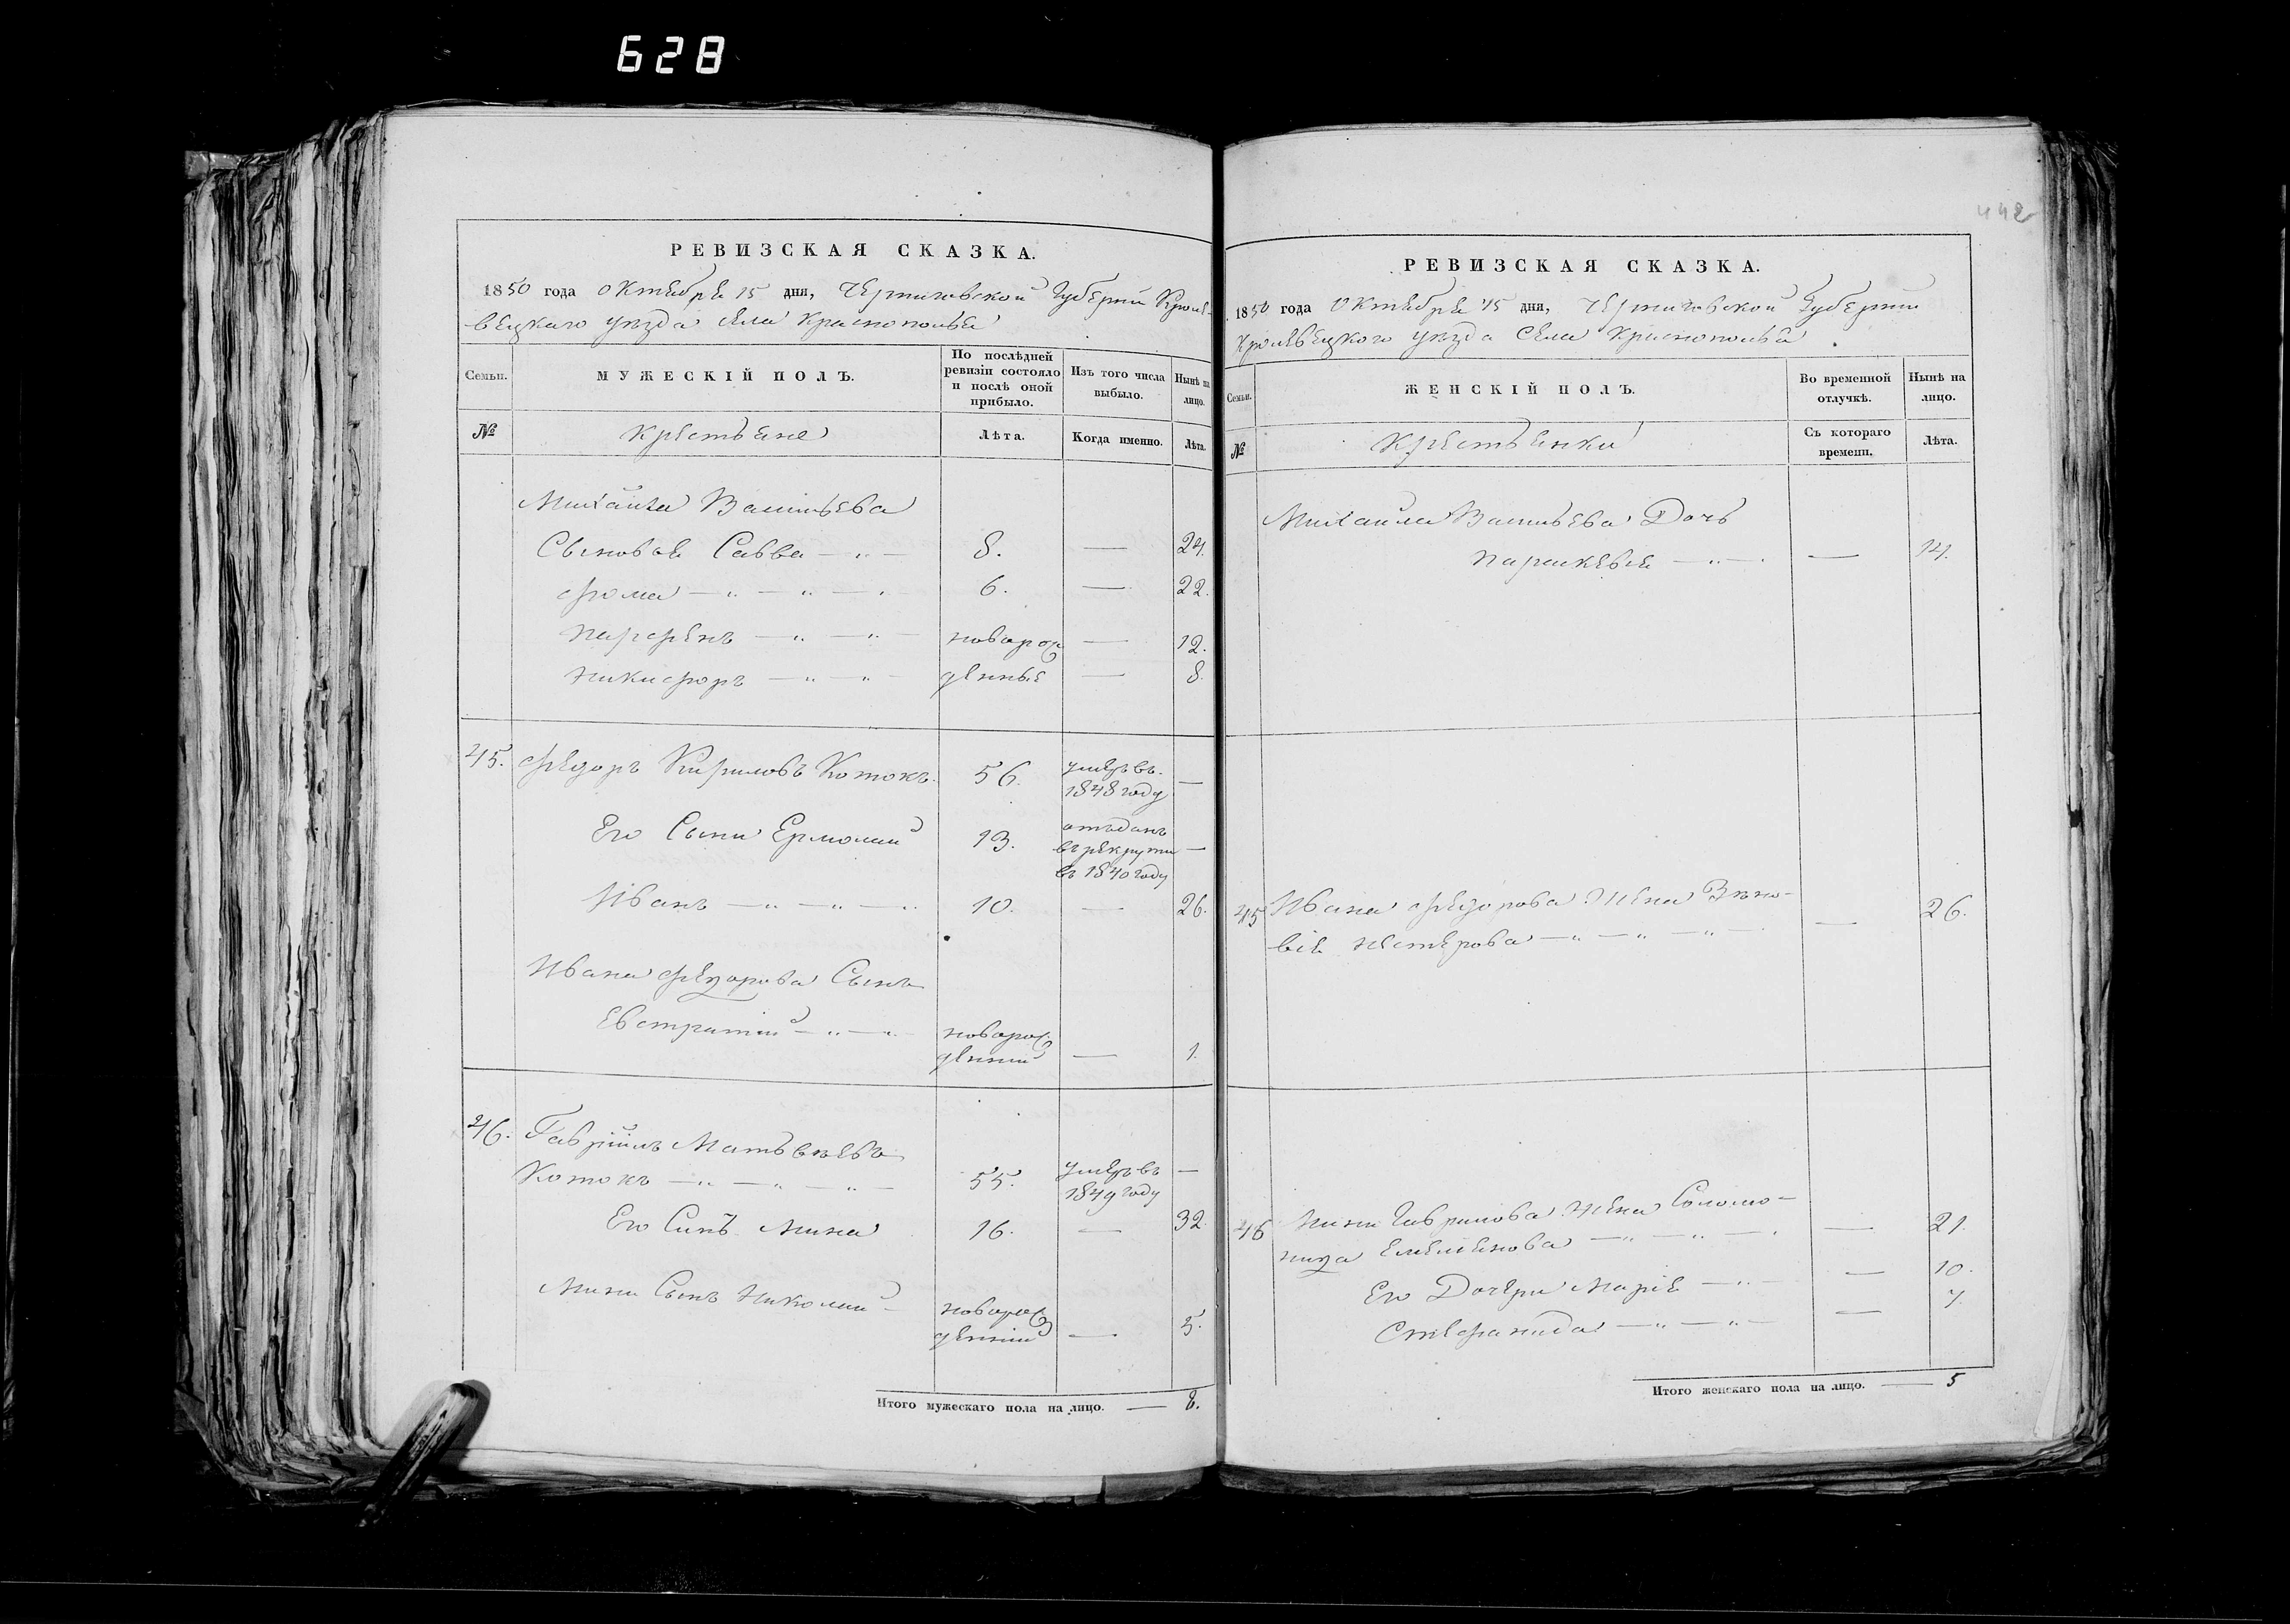 628
РЕВИЗСКАЯ СКАЗКА.
1850 года Октября 15 дня, Черниговской Губерніи Кроле-
вецкаго уезда села Краснополья
Семьи.
МУЖЕСКІЙ ПОЛЪ.
По послѣдней ревизіи состояло и послѣ оной прибыло.
Изъ того числа выбыло.
Нынѣ на лицо.
№
Крестьяне
Лѣта.
Когда именно.
Лѣта.
Михаила Васильева
Сыновья Савва — 8. — 24.
Фома — 6. — 22.
Парфенъ — новорож — 12.
Никифоръ — денные — 8.
45. Федоръ Кириловъ Котокъ. 56. умеръ въ 1848 году —
Его Сыни Ермолай 13. отъданъ въ рекруты въ 1840 году —
Иванъ — 10. — 26.
Ивана Федорова Сынъ
Евстратий — новорож
денний — 1.
46. Гавріилъ Матвѣевъ
Котокъ — 55. умеръ въ 1849 году —
Его Синъ Мина 16. — 32
Мини Сынъ Николай новорож
денний — 5.
Итого мужескаго пола на лицо. — 8.
442
РЕВИЗСКАЯ СКАЗКА.
1850 года Октября 15 дня, Черниговской Губерніи
Кролевецкого уезда Села Краснополья
Семьи.
ЖЕНСКІЙ ПОЛЪ.
Во временной отлучкѣ.
Нынѣ на лицо.
№
Крестьянки
Съ котораго времени.
Лѣта.
Михаила Васильева Дочь
Параскевія — — 14.
45 Ивана Федорова Жена Зѣно-
вія Нестерова — — 26.
46 Мини Гаврилова Жена Соломо-
нида Емельянова — — 21.
Его Дочери Марія — — 10.
Стефанида — — 7.
Итого женскаго пола на лицо. — 5